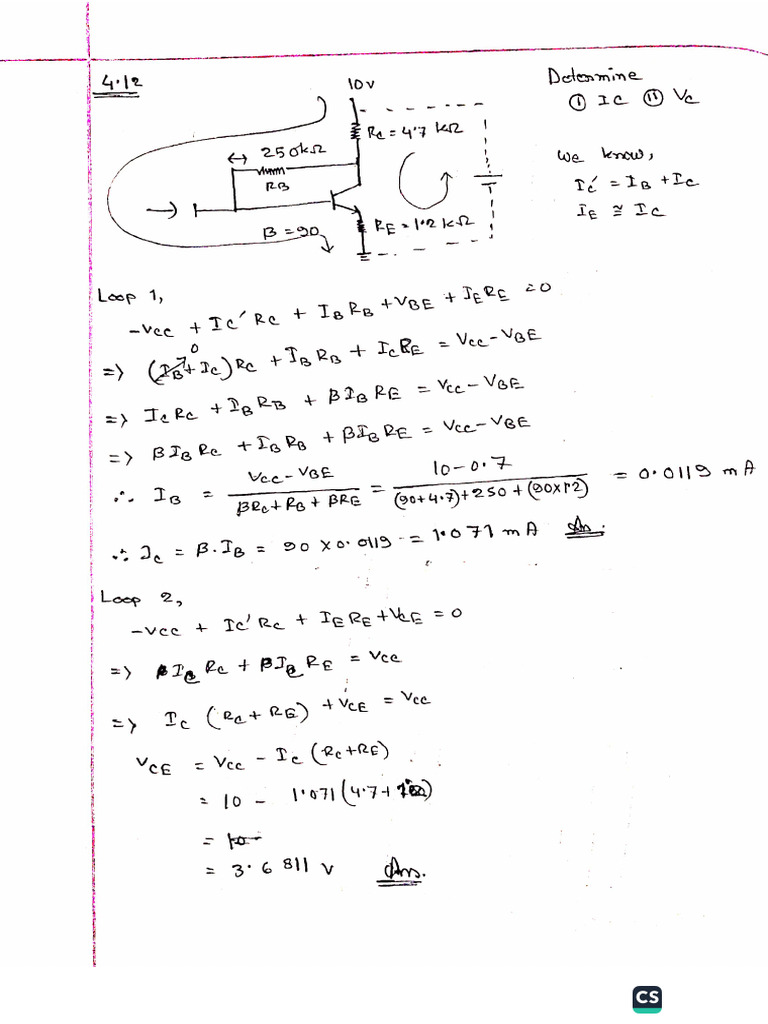 4.12
10V
Determine
① IC ② VC
RC = 4.7 kΩ
250kΩ
RB
We know,
IC' = IB + IC
IE ≅ IC
β = 90
RE = 1.2 kΩ
Loop 1,
-VCC + IC' RC + IB RB + VBE + IE RE = 0
=> (IB + IC) RC + IB RB + IC RE = VCC - VBE
0
=> IC RC + IB RB + β IB RE = VCC - VBE
=> β IB RC + IB RB + β IB RE = VCC - VBE
∴ IB = (VCC - VBE) / (βRC + RB + βRE) = (10 - 0.7) / ((90+4.7)+250+(90×1.2)) = 0.0119 mA
∴ IC = β·IB = 90 × 0.0119 = 1.071 mA Ans.
Loop 2,
-VCC + IC' RC + IE RE + VCE = 0
=> IC RC + IC RE = VCC
=> IC (RC + RE) + VCE = VCC
VCE = VCC - IC (RC + RE)
= 10 - 1.071 (4.7 +
= 10
= 3.6811 V Ans.
CS